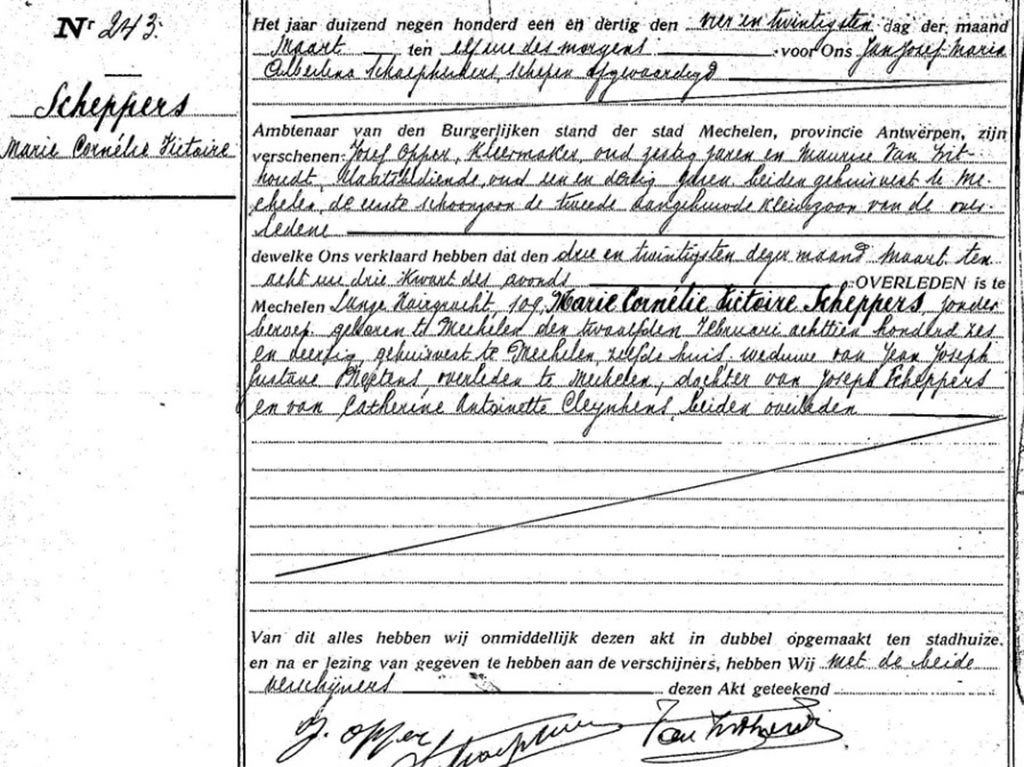 Nr 243.
Scheppers
Marie Cornélie Victoire
Het jaar duizend negen honderd een en dertig den vier en twintigsten dag der maand
Maart ten elf ure des morgens voor Ons Jan Josef Maria
schepen afgevaardigd
Ambtenaar van den Burgerlijken stand der stad Mechelen, provincie Antwerpen, zijn
verschenen: Josef Opper, kleermaker, oud zestig jaren en Maurice Van
oud een en dertig jaren beiden gehuisvest te Me-
chelen, de eerste schoonzoon de tweede aangehuwde kleinzoon van de over-
ledene
dewelke Ons verklaard hebben dat den drie en twintigsten dezer maand Maart ten
acht ure drie kwart des avonds OVERLEDEN is te
Mechelen Lange 109, Marie Cornélie Victoire Scheppers, zonder
beroep, geboren te Mechelen den twaalfden Februari achttien honderd zes
en veertig, gehuisvest te Mechelen, zelfde huis weduwe van Jean Joseph
Gustave overleden te Mechelen, dochter van Joseph Scheppers
en van Catherine Antoinette Cleynhens, beiden overleden
Van dit alles hebben wij onmiddelijk dezen akt in dubbel opgemaakt ten stadhuize.
en na er lezing van gegeven te hebben aan de verschijners, hebben Wij met de beide
verschijners dezen Akt geteekend
J. Opper